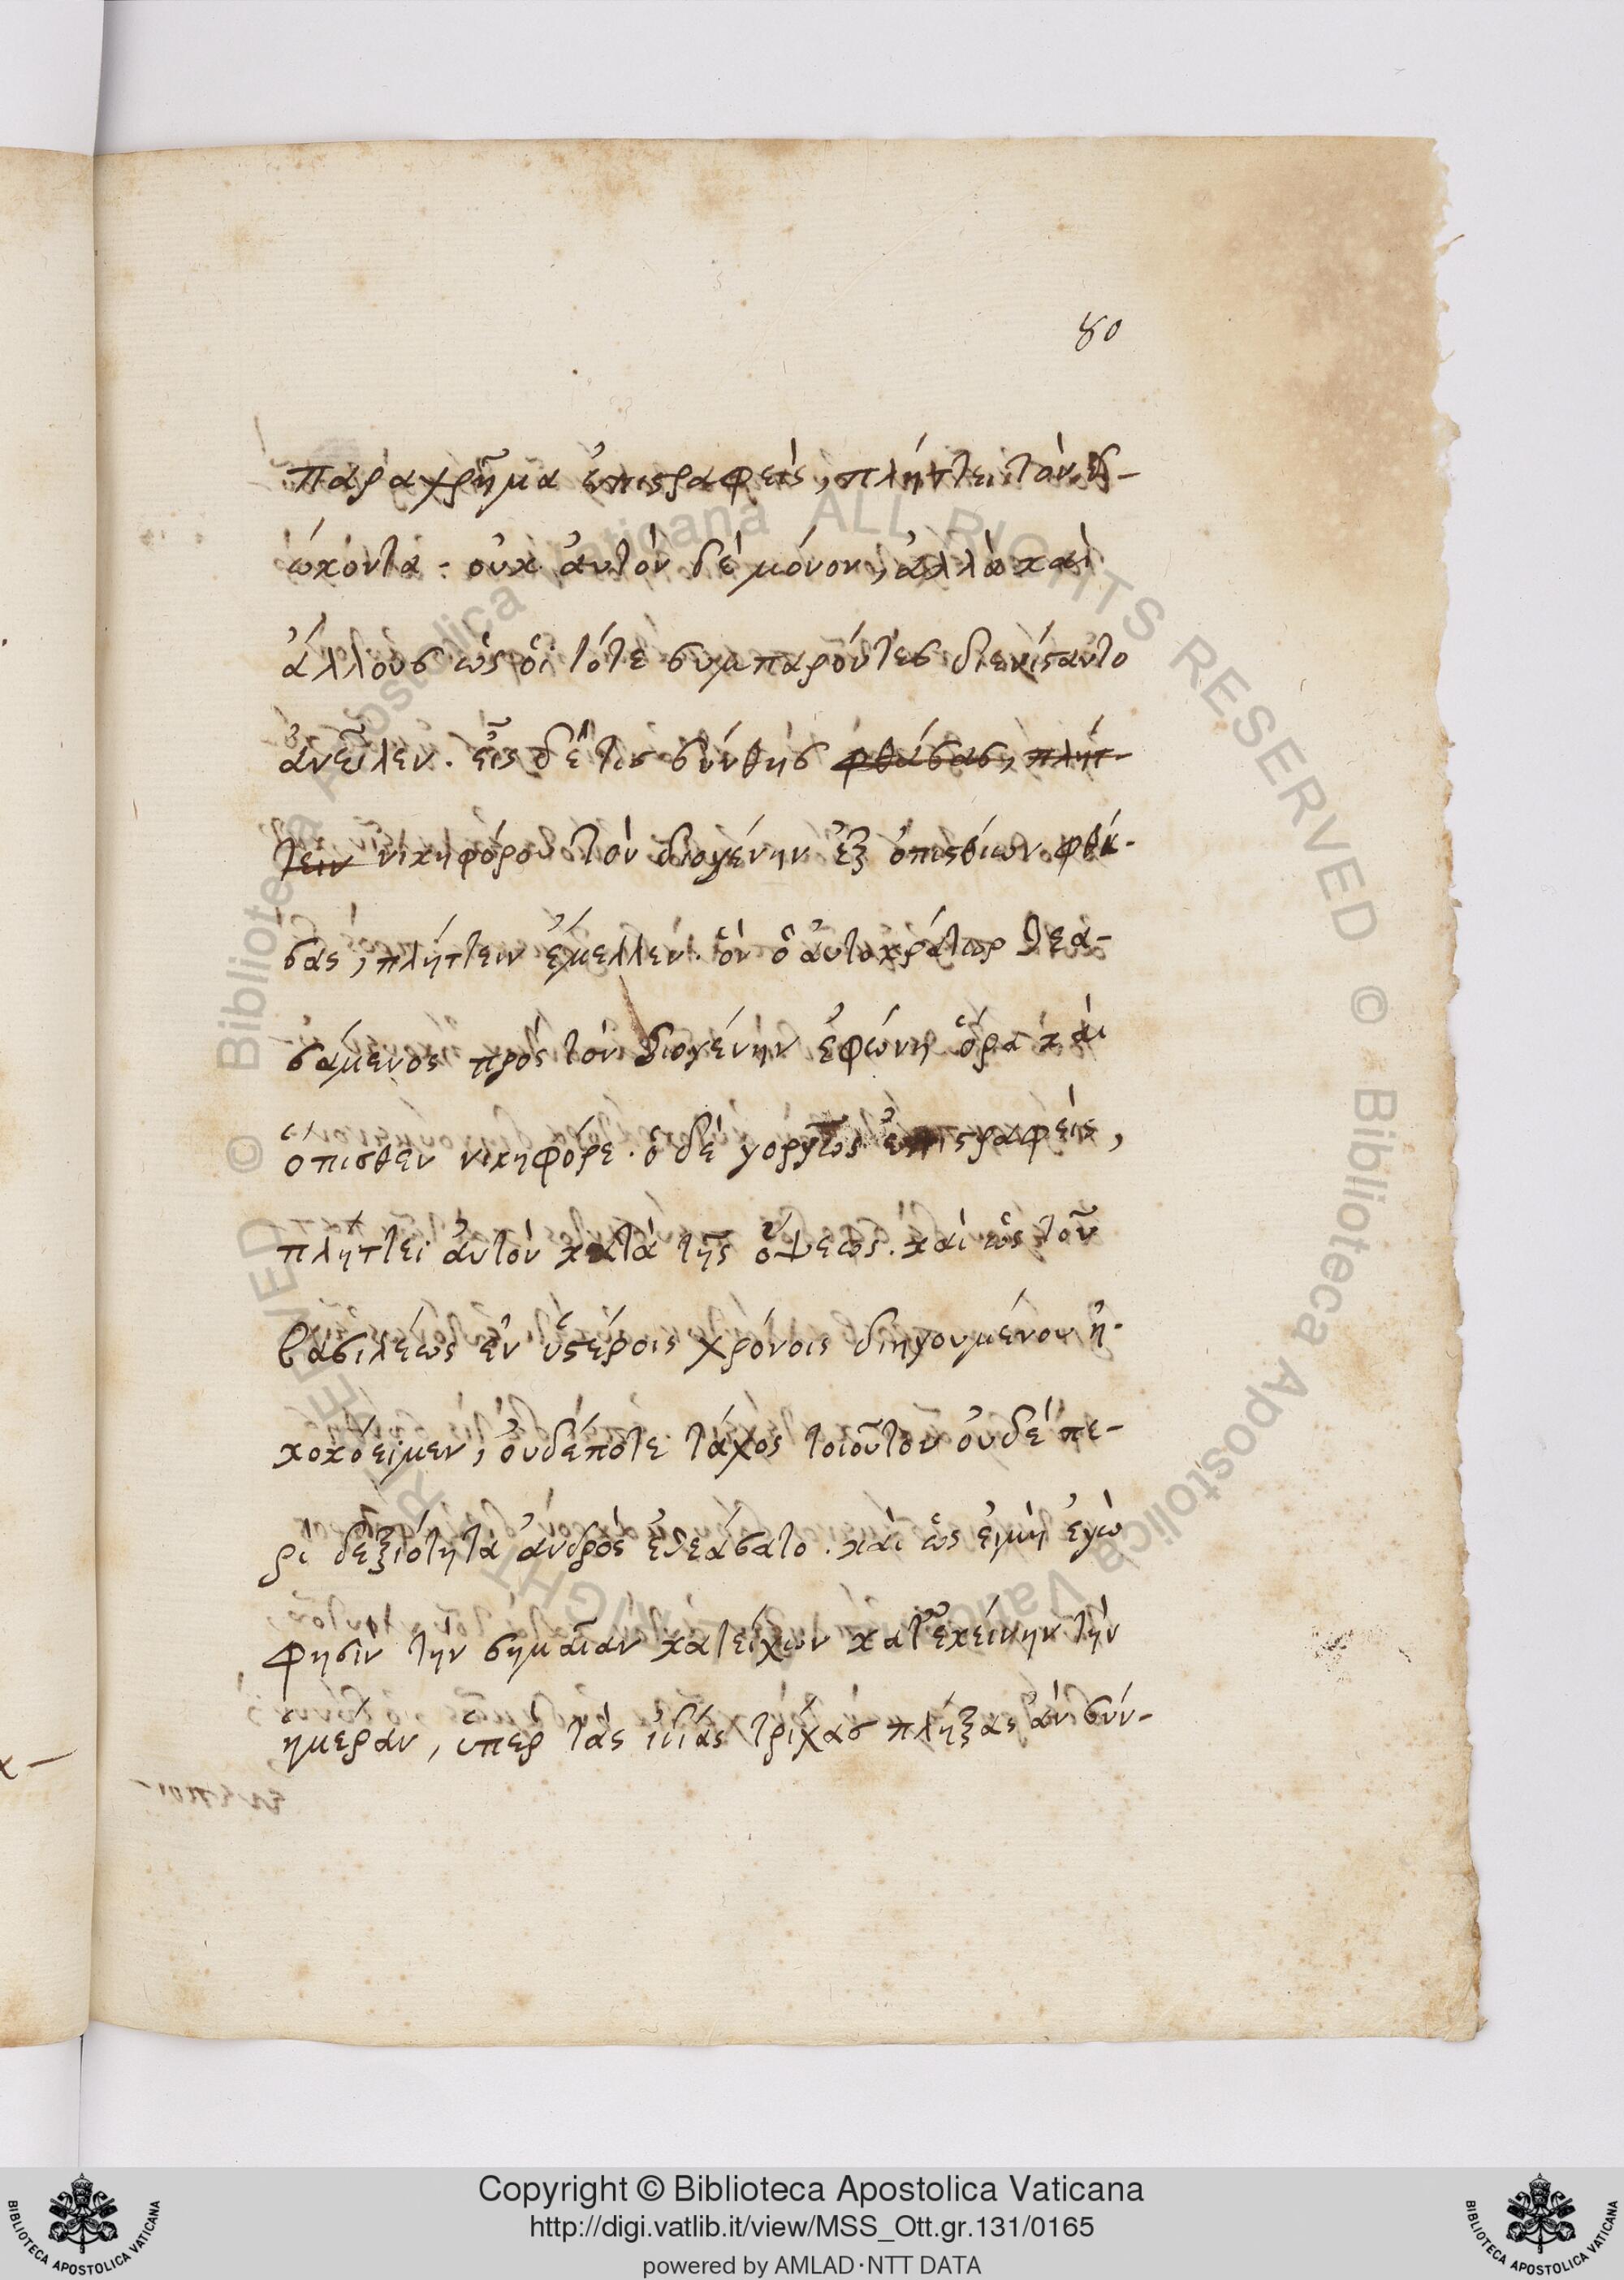 80
παραχρῆμα ἐπιστραφεὶς, πλήττει τὸν δι-
ώκοντα. οὐκ ἀυτὸν δὲ μόνον, ἀλλὰ καὶ
ἄλλους ὡς ὁι τότε συμπαρόντες διενίσαντο
ἀνεῖλεν. εἷς δέ τισ σύνθης φθάσας, πλήτ-
τειν νικηφόρου τὸν διογένην ἐξ ὀπισθίων φθά-
σας, πλήττειν ἔμελλεν. ὃν ὁ ἀυτοκράτωρ θεα-
σάμενος πρὸς τὸν διογένην ἐφώνη ὅρα καὶ
ὄπισθεν νικηφόρε. ὁ δὲ γοργῶς ἐπιστραφεὶς,
πλήττει ἀυτὸν κατὰ τῆς ὄψεως. καὶ ὡς τοῦ
βασιλέως ἐν ὑστέροις χρόνοις διηγουμένου ἠ-
κοκόειμεν, ὀυδέποτε τάχος τοιοῦτον ὀυδέ πε-
ρι δεξιότητα ἀνδρὸς ἐθεάσατο. καὶ ὡς ἐιμὴ ἐγὼ
φησὶν την σημαῖαν κατείχων κατ' ἐκείνην τὴν
ἡμέραν, ὑπὲρ τὰς ἰδίας τρίχασ πλήξας ἀν σύν-
Copyright © Biblioteca Apostolica Vaticana
http://digi.vatlib.it/view/MSS_Ott.gr.131/0165
powered by AMLAD·NTT DATA